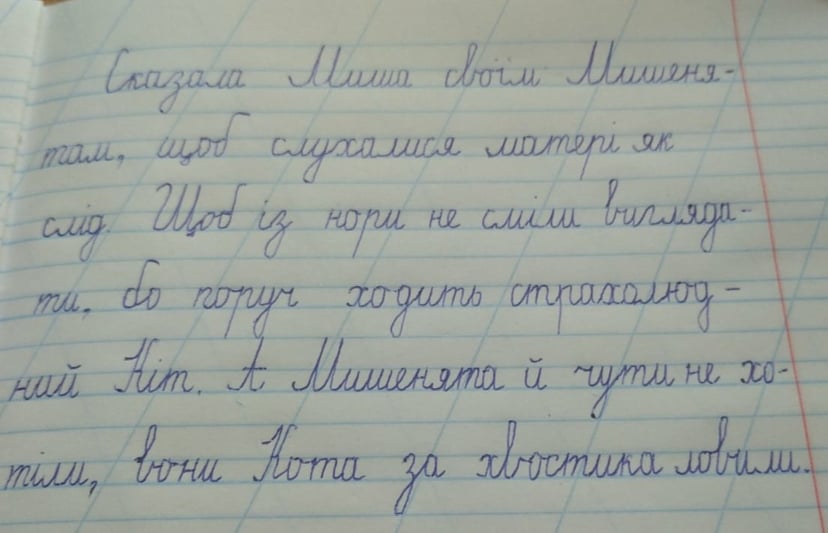 Сказала Миша своїм Мишеня-
там, щоб слухалися матері як
слід. Щоб із нори не сміли вигляда-
ти, бо поруч ходить страхолюд-
ний Кіт. А Мишенята й чути не хо-
тіли, вони Кота за хвостика ловили.